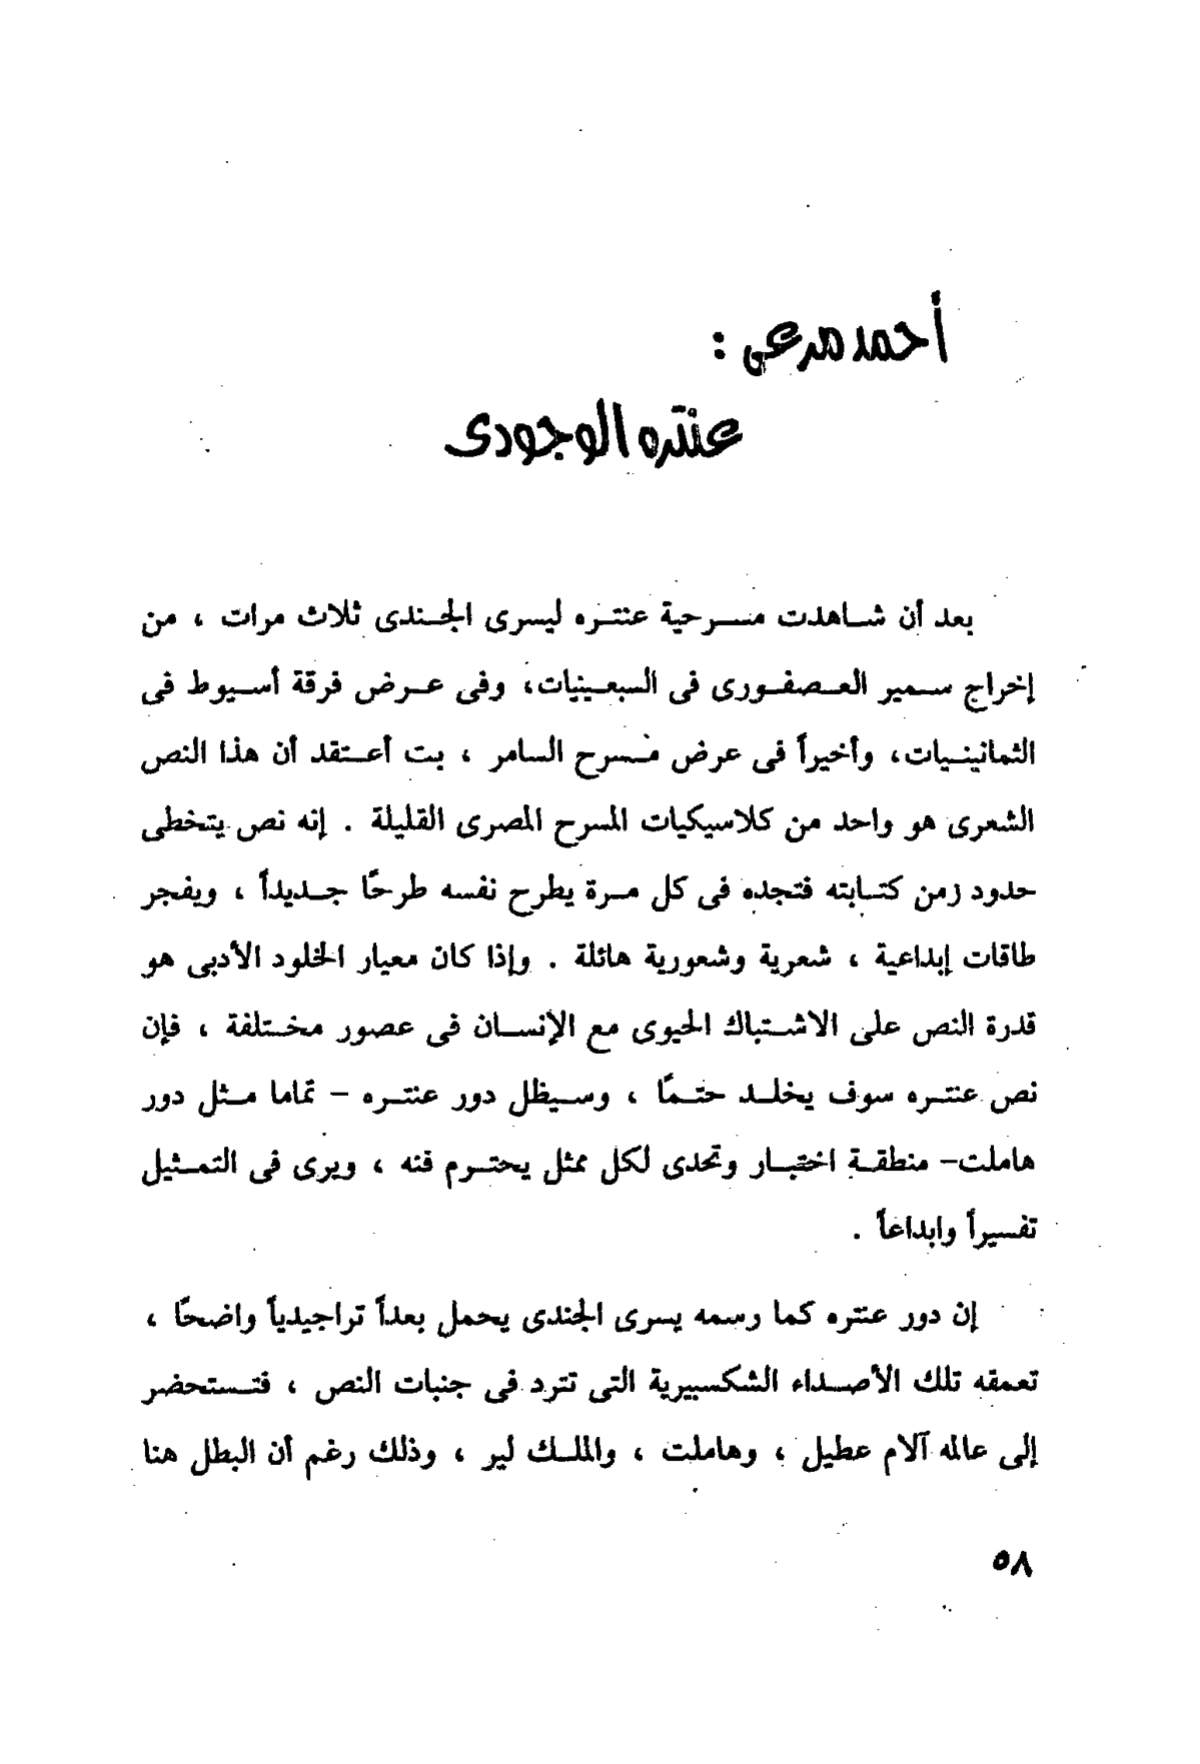 أحمد مرعى :
عنتره الوجودى
بعد أن شاهدت مسرحية عنتره ليسرى الجندى ثلاث مرات ، من
إخراج سمير العصفورى فى السبعينيات، وفى عرض فرقة أسيوط فى
الثمانينيات، وأخيراً فى عرض مسرح السامر ، بت أعتقد أن هذا النص
الشعرى هو واحد من كلاسيكيات المسرح المصرى القليلة . إنه نص يتخطى
حدود زمن كتابته فتجده فى كل مرة يطرح نفسه طرحًا جديداً ، ويفجر
طاقات إبداعية ، شعرية وشعورية هائلة . وإذا كان معيار الخلود الأدبى هو
قدرة النص على الاشتباك الحيوى مع الإنسان فى عصور مختلفة ، فإن
نص عنتره سوف يخلد حتمًا ، وسيظل دور عنتره – تماما مثل دور
هاملت– منطقة اختبار وتحدى لكل ممثل يحترم فنه ، ويرى فى التمثيل
تفسيراً وابداعاً .
إن دور عنتره كما رسمه يسرى الجندى يحمل بعداً تراجيدياً واضحًا ،
تعمقه تلك الأصداء الشكسبيرية التى تترد فى جنبات النص ، فتستحضر
إلى عالمه آلام عطيل ، وهاملت ، والملك لير ، وذلك رغم أن البطل هنا
٥٨